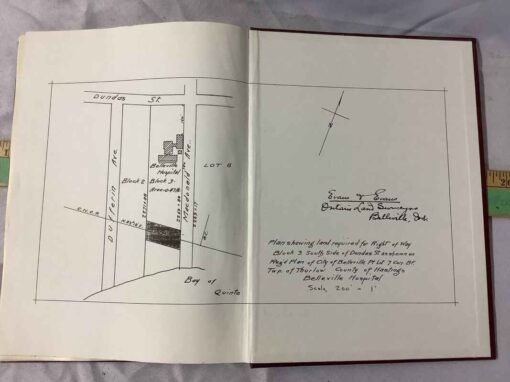 Dundas St.
Dufferin Ave.
Macdonald Ave.
Belleville
Hospital
Block 2
Block 3
LOT 8
C.N.O.R.
Bay of
Quinte
N
Evans & Evans
Ontario Land Surveyors
Belleville, Ont.
Plan showing land required for Right of Way
Block 3 South Side of Dundas St as shown on
Reg'd Plan of City of Belleville Pt Ld 7 Con. Br.
Twp. of Thurlow County of Hastings
Belleville Hospital
Scale 200' = 1"